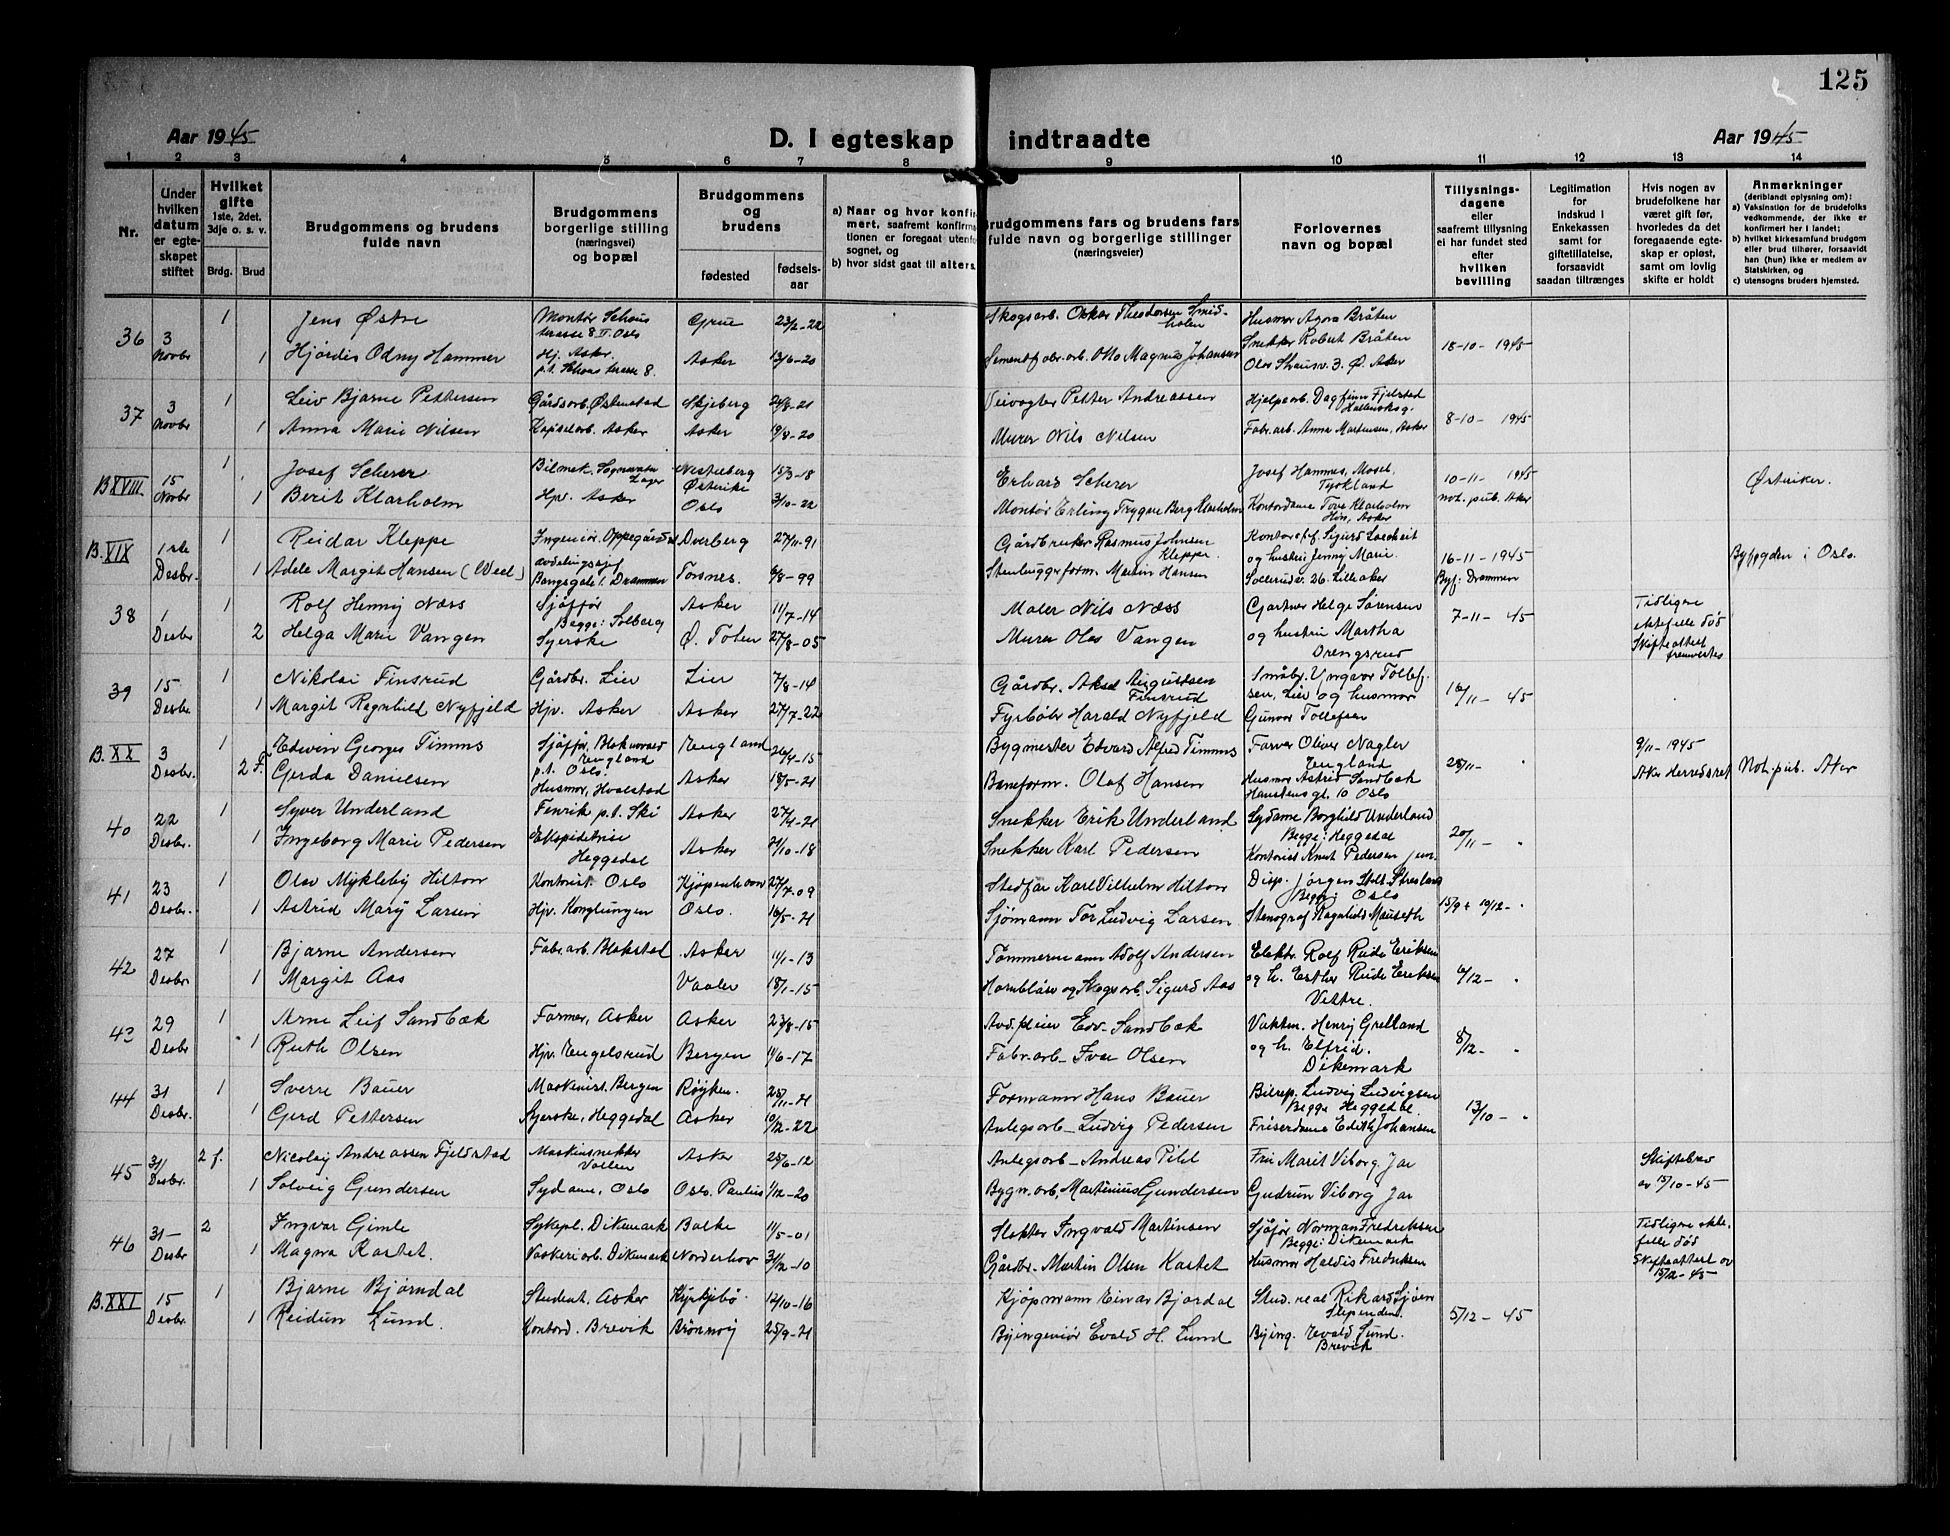 125
Aar 1945
D. I egteskap indtraadte
Aar 1945
1 2 3 4 5 6 7 8 9 10 11 12 13 14
Nr.
Under hvilken datum er egteskapet stiftet
Hvilket gifte 1ste, 2det. 3dje o. s. v.
Brdg. Brud
Brudgommens og brudens fulde navn
Brudgommens borgerlige stilling (næringsvei) og bopæl
Brudgommens og brudens
fødested
fødselsaar
a) Naar og hvor konfirmert, saafremt konfirmationen er foregaat utenfor sognet, og
b) hvor sidst gaat til alters.
Brudgommens fars og brudens fars fulde navn og borgerlige stillinger (næringsveier)
Forlovernes navn og bopæl
Tillysningsdagene eller saafremt tillysning ei har fundet sted efter hvilken bevilling
Legitimation for indskud i Enkekassen samt for giftetillatelse, forsaavidt saadan tiltrænges
Hvis nogen av brudefolkene har været gift før, hvorledes da det foregaaende egteskap er opløst, samt om lovlig skifte er holdt
Anmerkninger (deriblandt oplysning om):
a) Vaksination for de brudefolks vedkommende, der ikke er konfirmert her i landet;
b) hvilket kirkesamfund brudgom eller brud tilhører, forsaavidt han (hun) ikke er medlem av Statskirken, og
c) utensogns bruders hjemsted.
36 3 Novbr 1 Jens Østre Montør Schous terasse 8 II Oslo Grue 23/2-22 Skogsarb. Oskar Theodorsen Smidholen Husmor Agora Bråten
1 Hjørdis Odny Hammer Hj. Asker. p.t. Schous terasse 8. Asker 13/6-20 Sementfabr.arb. Otto Magnus Johansen Snekker Robert Bråten Olav Thausv. 3. Ø. Asker 18-10-1945
37 3 Novbr 1 Leiv Bjarne Pettersen Gårdsarb. Østenstad Skjeberg 24/8-21 Veivogter Petter Andreassen Hjelpearb. Dagfinn Fjelstad
1 Anna Marie Nilsen Kapselarb. Asker Asker 19/8-20 Murer Nils Nilsen Fabr.arb. Anna Martensen, Asker 8-10-1945
B XVIII 15 Novbr 1 Josef Scherer Bilmek. Sognsvatn Lager Østerike 15/3-18 Erhars Scherer Josef Hammes, Mosel, Tyskland 10-11-1945 Østeriker.
1 Berit Klarholm Hpv. Asker Oslo 3/10-22 Montør Erling Trygve Berg Klarholm Kontordame Tove Klarholm Høn, Asker not. pub. Aker
B. XIX 1ste Desbr. 1 Reidar Kleppe Ingeniør. Oppegård Dverberg 27/11-91 Gårdbruker Rasmus Johnsen Kleppe. Kontorsjef. Sigurd Loedseit
1 Adele Margit Hansen (Weel) avdelingssjef Bangsgate 1 Drammen Torsnes. 6/8-99 Stenhuggerform. Martin Hansen og hustru Jenny Marie. Sollerudv. 26. Lilleaker 16-11-1945 Byf: Drammen Byfogden i Oslo.
38 1 Desbr 1 Rolf Henry Næss Sjåfør Begge: Solberg Asker 11/7-14 Maler Nils Næss Gartner Helge Sørensen 7-11-45 Tidligere ektefelle død
2 Helga Marie Vangen Syerske Ø. Toten 27/8-05 Murer Olas Vangen og hustru Martha Drengsrud Skifteattest fremvertes
39 15 Desbr. 1 Nikolai Finsrud Gårdbr. Lier Lier 7/8-14 Gårdbr. Aksel Augustsen Finsrud Småbr. Yngvar Tollefsen, Lier og husmor 16/11-45
1 Margit Ragnhild Nyfjeld Hjv. Asker Asker 27/7-22 Fyrbøter Harald Nyfjeld Gunvor Tollefsen
B. XX 3 Desbr. 1 Edwin Georges Timms Sjåfør, England p.t. Oslo. England 26/4-15 Bygmester Edvard Alfred Timms Farver Oliver Nagler England 28/11- " 9/11-1945
2 F. Gerda Danielsen Husmor, Hvalstad Asker 18/5-21 Baneform. Olaf Hansen Husmor Astrid Sandbæk Hanstensgt. 10 Oslo Aker Herredsret Not. pub. Aker
40 22 Desbr. 1 Syver Underland Fenrik p.t. Ski Asker 27/4-21 Snekker Erik Underland Sydame Borghild Underland
1 Ingeborg Marie Pedersen Ekspeditrise Heggedal Asker 21/10-18 Snekker Karl Pedersen Begge: Heggedal Kontorist Knut Pedersen jun. 20/11- "
41 23 Desbr. 1 Olav Mykleby Hilton Kontorist Oslo Kjøpenhavn 27/7-09 Karl Vilhelm Hilton Disp. Jørgen Begge Oslo
1 Astrid Mary Larsen Hjv. Konglungen Oslo. 16/5-21 Sjømann Tor Ludvig Larsen Stenograf Ragnhild Mauseth 15/9 + 10/12- "
42 27 Desbr. 1 Bjarne Andersen Fabr.arb. Blakstad Asker 11/1-13 Tømmermann Adolf Andersen Elektr. Rolf Rude Eriksen
1 Margit Aas Vaaler 18/1-15 Hornblåser og Skogsarb. Sigurd Aas og h. Esther Rude Eriksen Vettre. 6/12- "
43 29 Desbr 1 Arne Leif Sandbæk Farmer, Asker Asker 23/8-15 Avd.pleier Edv. Sandbæk Vaktm. Henry Grelland
1 Ruth Olsen Hjv. Engelsrud Bergen 11/6-17 Fabr.arb. Ivar Olsen og h. Elfrid. Dikemark 8/12- "
44 31 Desbr. 1 Sverre Bauer Maskinist. Bergen Røyken. 25/11-21 Formann Hans Bauer Bilrep. Ludvig Ludvigsen Begge Heggedal.
1 Gerd Pettersen Syerske, Heggedal Asker 19/12-22 Anlegsarb. Ludvig Pedersen Friserdame Edith Johansen 13/10- "
45 31/ Desbr. 2 f. Nicolay Andreassen Fjeldstad Maskinsnekker Vollen Asker 25/6-12 Anlegsarb. Andreas Pihl Fru Marit Viborg, Jar Skiftebrev av 15/10-45
1 Solveig Gundersen Sydame, Oslo Oslo. Paulus 1/12-20 Bygn.arb. Martinius Gundersen Gudrun Viborg Jar
46 31- Desbr 2 Ingvar Gimle Sykepl. Dikemark Balke 11/5-01 Slakter Ingvald Martinsen Sjåfør Norman Fredriksen Begge: Dikemark Tidligere ektefelle død
1 Magna Kastet. Vaskeriarb. Dikemark Norderhov 31/12-10 Gårdbr. Martin Olsen Kastet Husmor Haldis Fredriksen Skifteattest av 15/12-45
B. XXI 15 Desbr. 1 Bjarne Bjørndal Student, Asker Kyrkjebø. 12/10-16 Kjøpmann Einar Bjørdal Stud. real Rikard Sjøen Slependen.
1 Reidun Lund. Kontord. Brevik Brønnøy 25/9-21 Byingeniør Evald H. Lund Bying. Evald Lund. Brevik 5/12-45